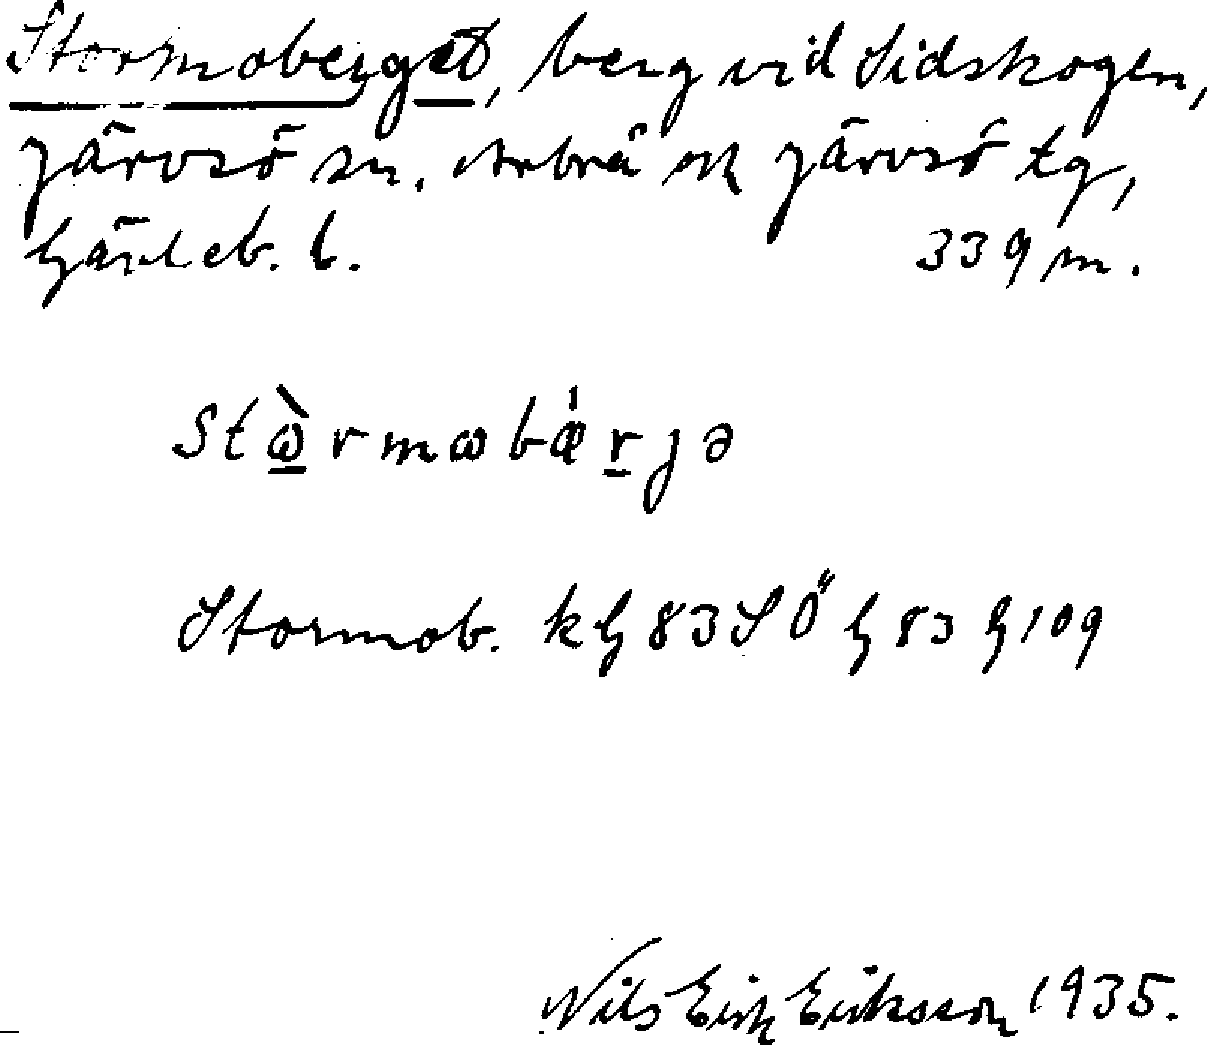 Stormoberget, berg vid Sidskogen,
Järvsö sn. Arbrå ok Järvsö tg,
Gävleb. l. 339 m.
Stɷ̀rmɷbǽrjə
Stormob. kG 83 SÖ G 83 G 109
Nils Erik Eriksson 1935.